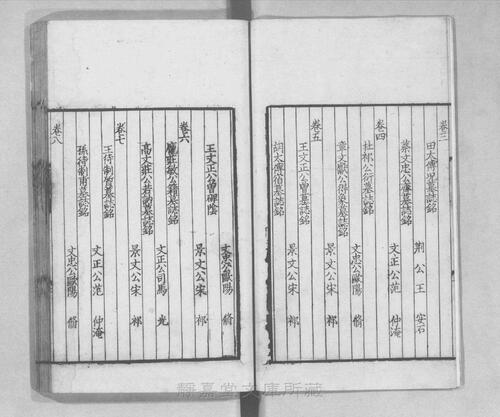 卷三
田太傅况墓誌銘
荆公王 安石
蔡文忠公齊墓誌銘
文正公范 仲淹
卷四
杜祁公衍墓誌銘
文忠公歐陽 脩
章文獻公得象墓誌銘
景文公宋 祁
卷五
王文正公曾墓誌銘
景文公宋 祁
胡太傅宿墓誌銘
文忠公歐陽 脩
王文正公曾碑陰
景文公宋 祁
卷六
龐莊敏公籍墓誌銘
文正公司馬 光
高文莊公若訥墓誌銘
景文公宋 祁
卷七
王待制質墓誌銘
文正公范 仲淹
孫待制甫墓誌銘
文忠公歐陽 脩
卷八
靜嘉堂文庫所藏